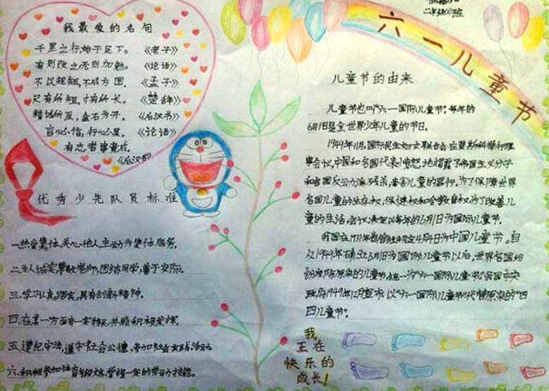 二年级
六一儿童节
我最爱的名句
千里之行,始于足下。《老子》
有则改之,无则加勉。《论语》
不以规矩,不成方圆。《孟子》
尺有所短,寸有所长。《楚辞》
精诚所至,金石为开。《后汉书》
言必信,行必果。《论语》
有志者事竟成。
《后汉书》
优秀少先队员标准
一.热爱集体,关心他人,主动为集体服务。
二.为人诚实,尊敬老师,团结同学,善于交际。
三.学习认真踏实,具有创新精神。
四.在某一方面有一定特长,并
五.遵纪守法,遵守社会公德,参加社会
六.积极参加体育锻炼,掌握一定的劳动技能。
儿童节的由来
儿童节也叫"六一国际儿童节",每年的
6月1日是全世界少年儿童的节日。
1949年11月,国际民主妇女联合会在莫斯科举行理
事会议,中国和各国代表愤怒地揭露了帝国主义分子
和各国反动派残杀、毒害儿童的罪行。为了保障世界
各国儿童的生存权、保健权和受教育权,为了改善儿
童的生活,会议决定以每年的6月1日为国际儿童节。
我国在1931年曾
4月4日为中国儿童节。自
从1949年确立6月1日为国际儿童节以后,世界各国纷
纷废除原来的儿童节,统一为"六一国际儿童节"。我国中央
政府1949年12月宣布,以"六一国际儿童节"代替原来的"四
四儿童节"。
我
正在
快乐的
成长!